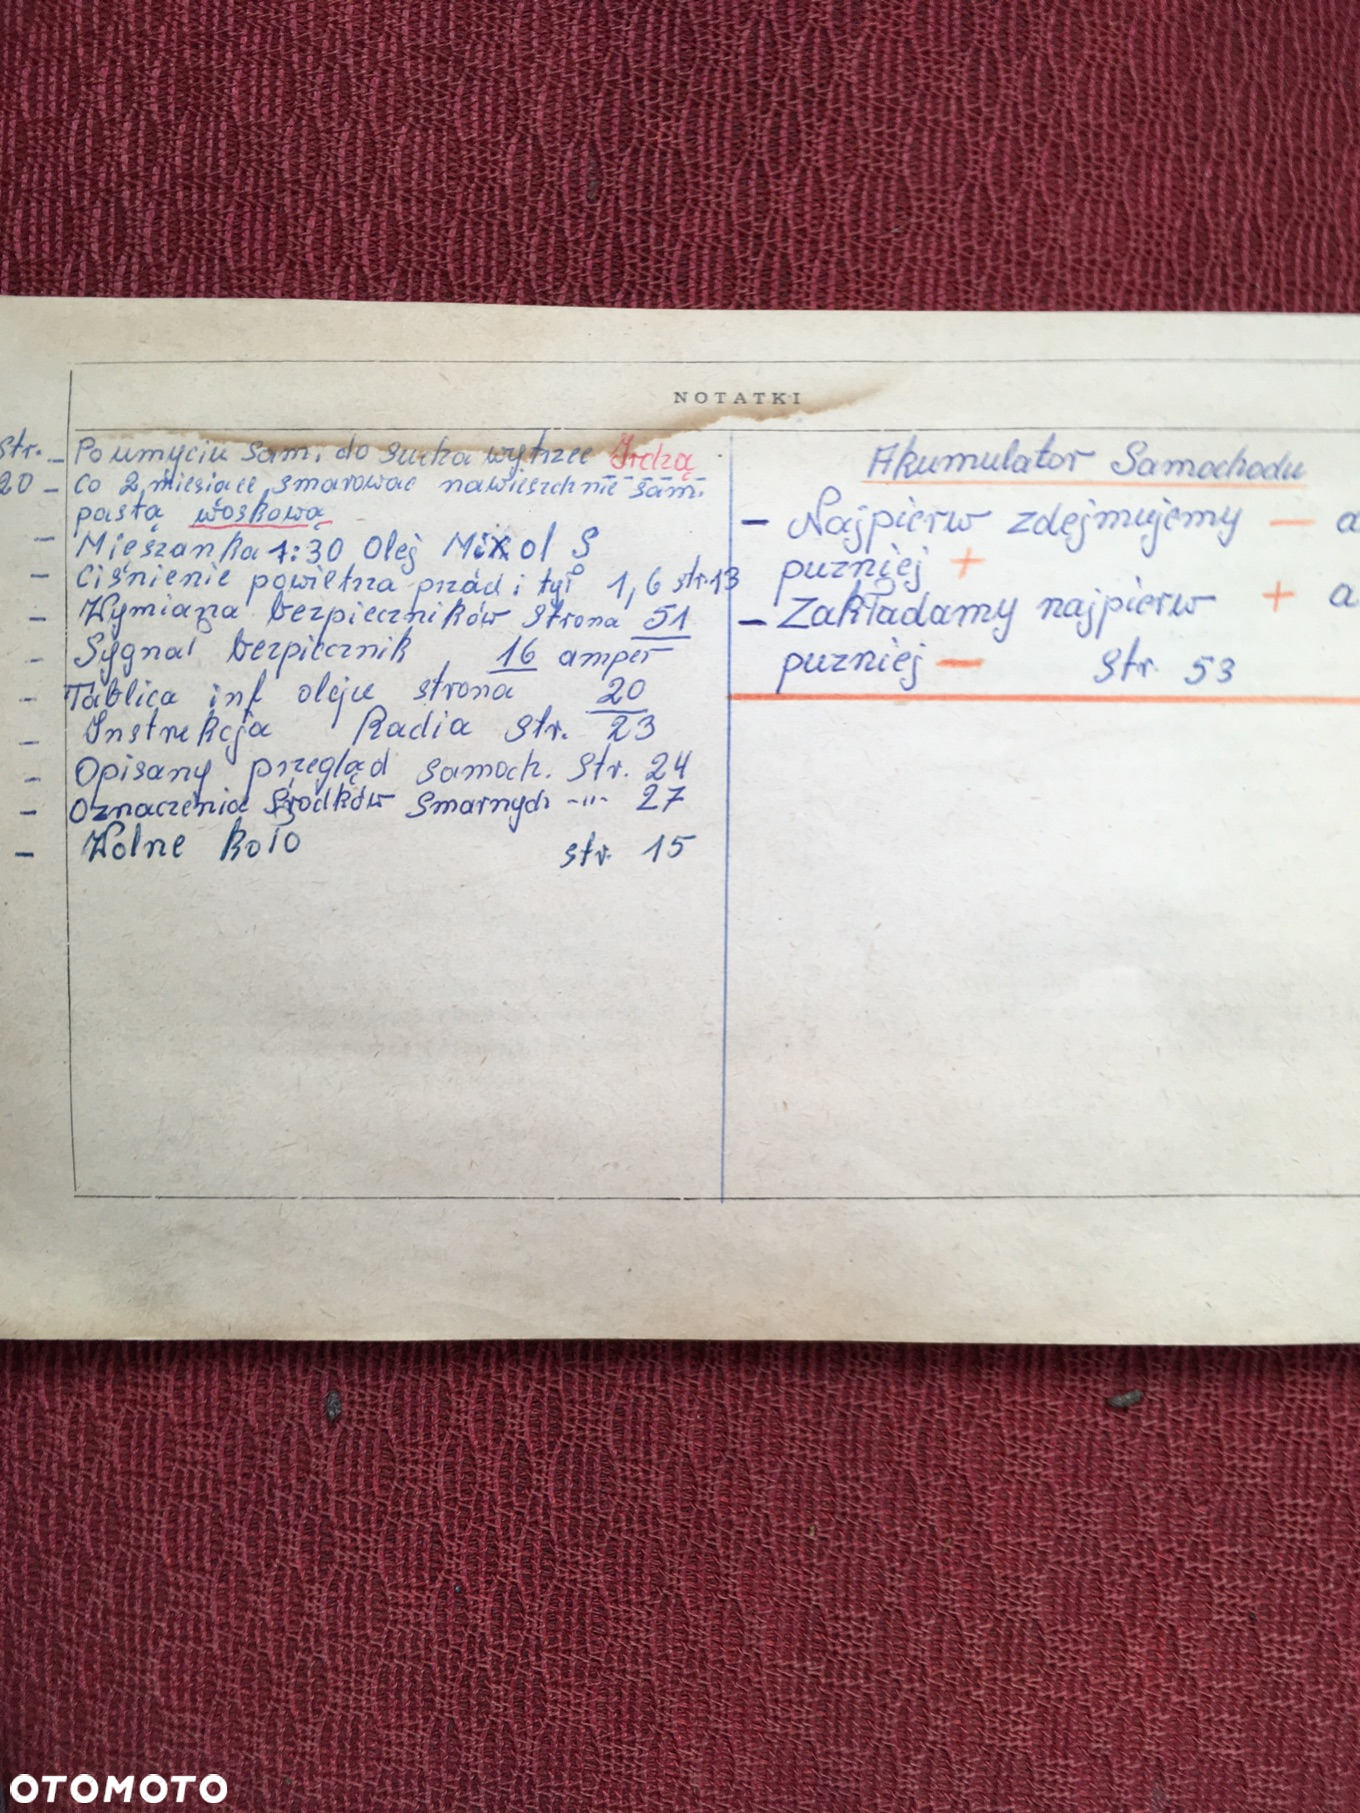 NOTATKI
str. - Po umyciu sam. do sucha wytrzeć Irchą
20 - co 2 miesiące smarować nawieszchnie sam.
pastą woskową
- Mieszanka 1:30 Olej Mixol S
- Ciśnienie powietrza przód i tył 1,6 str. 13
- Wymiana bezpieczników strona 51
- Sygnał bezpiecznik 16 amper
- Tablica inf oleju strona 20
- Instrukcja Radia str. 23
- Opisany przegląd samoch. str. 24
- Oznaczenia środków smarnych -"- 27
- Wolne koło str. 15
Akumulator Samochodu
- Najpierw zdejmujemy - a
puzniej +
- Zakładamy najpierw + a
puzniej - str. 53
OTOMOTO